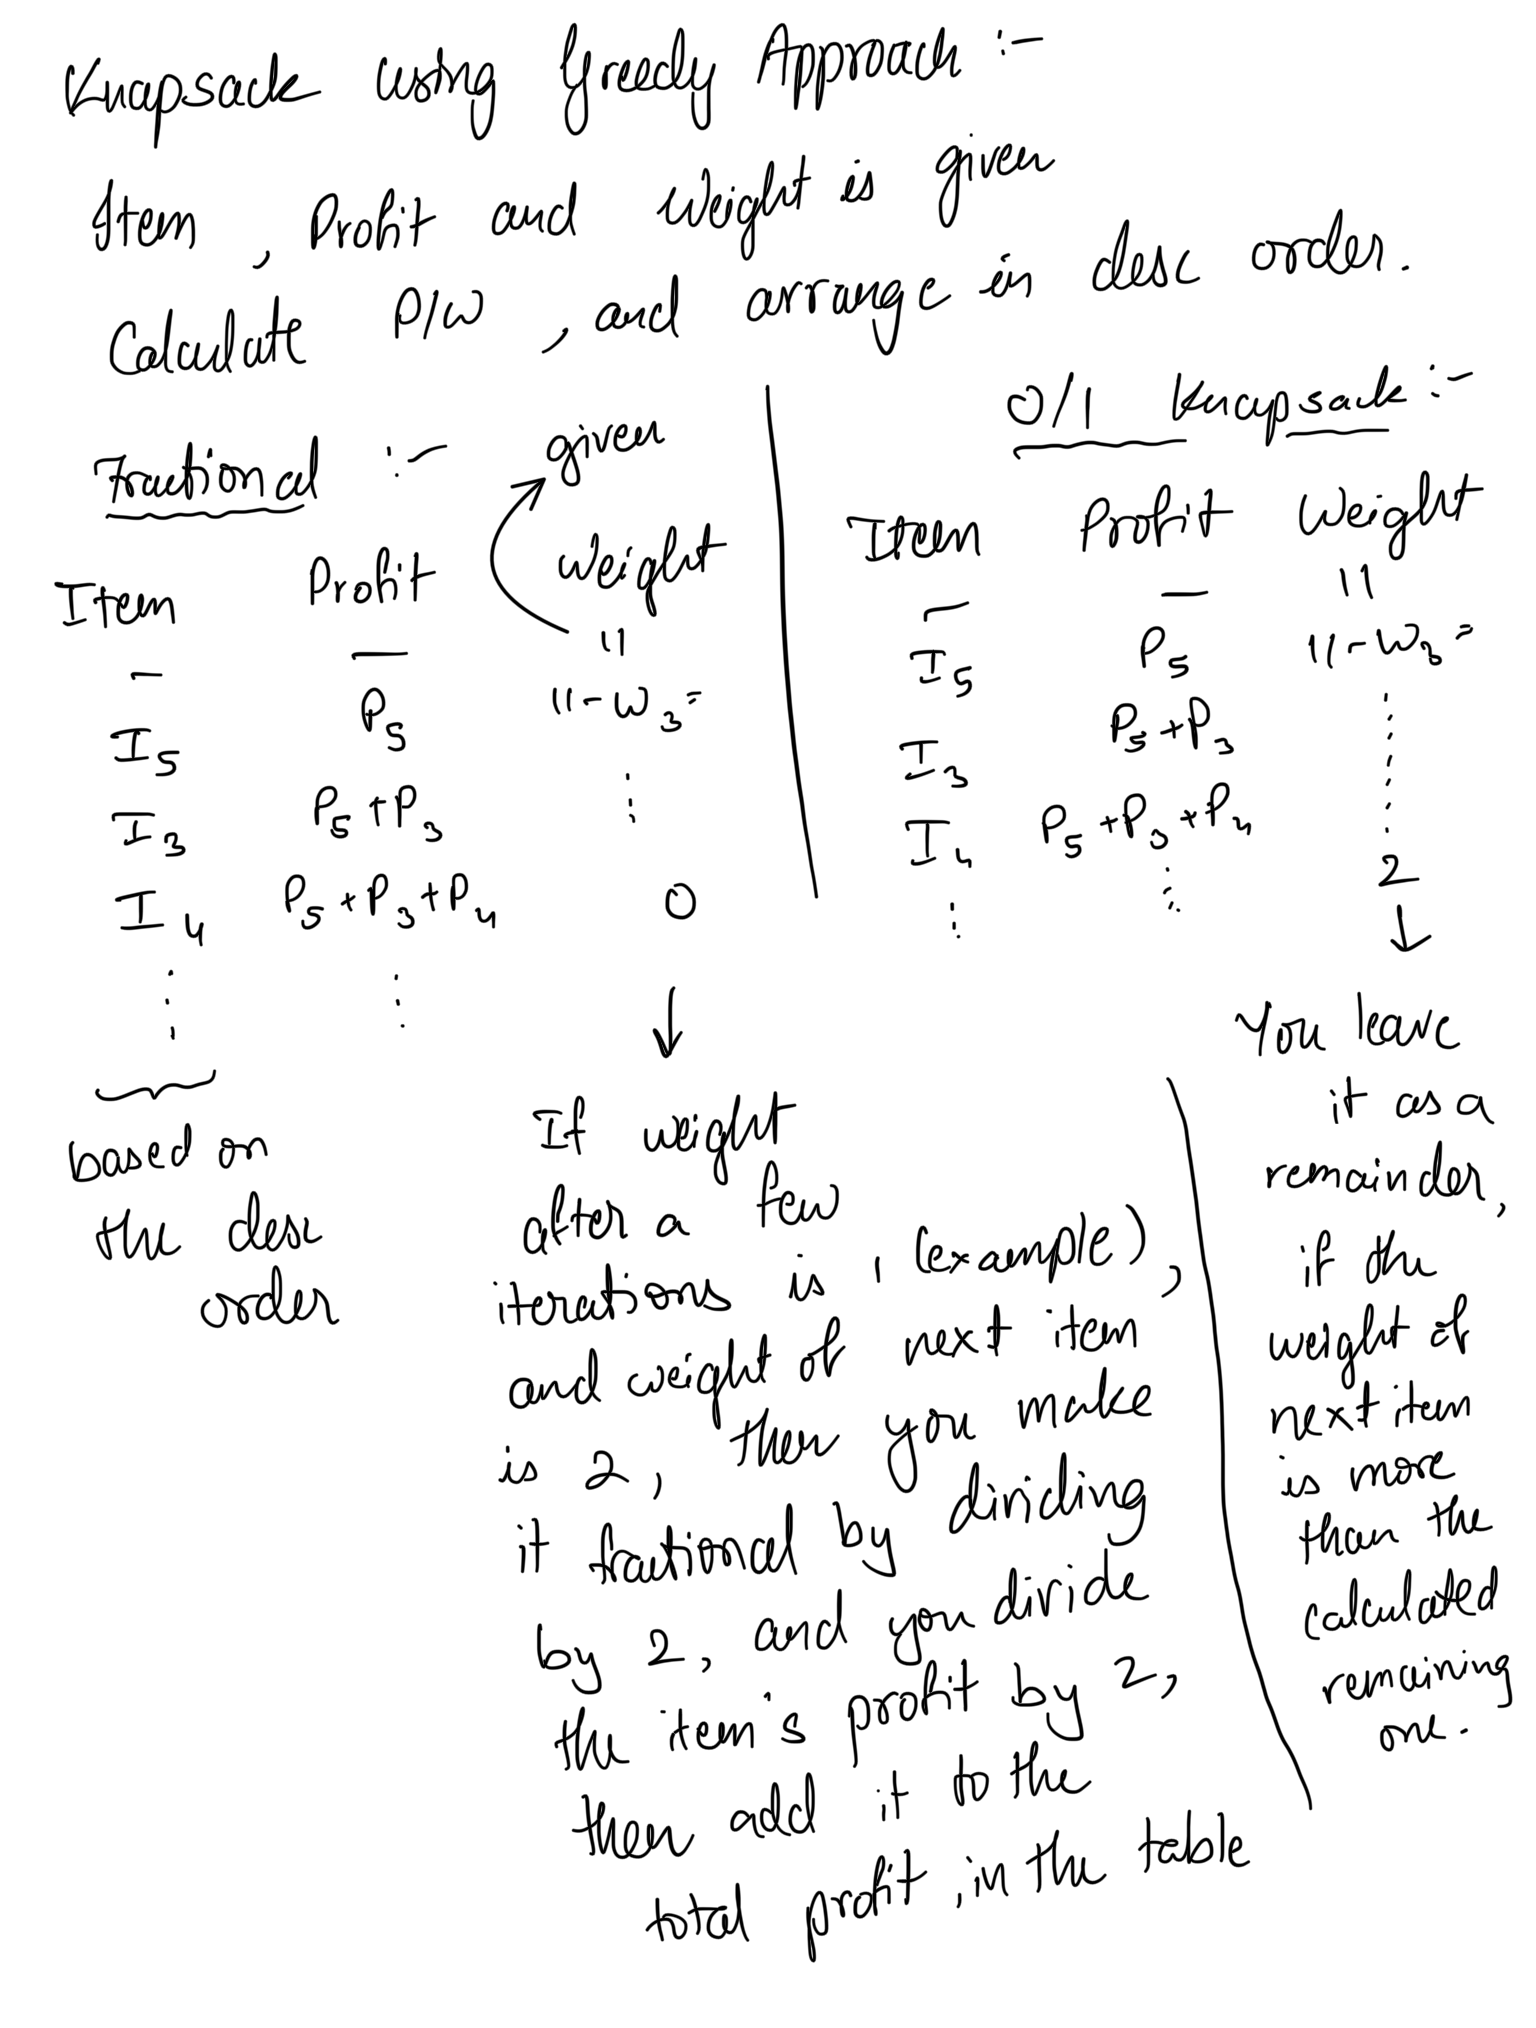 Knapsack using Greedy Approach :-
Item, Profit and Weight is given
Calculate P/W, and arrange in desc order.
Fractional :-
given
Item Profit Weight
— — 11
I5 P5 11-W3=
I3 P5+P3 ⋮
I4 P5+P3+P4 0
⋮ ⋮ ↓
based on
the desc
order
If weight
after a few
iterations is 1 (example),
and weight of next item
is 2, then you make
it fractional by dividing
by 2, and you divide
the item's profit by 2,
then add it to the
total profit, in the table
0/1 Knapsack :-
Item Profit Weight
— — 11
I5 P5 11-W3=
I3 P5+P3 ⋮
I4 P5+P3+P4 ⋮
⋮ ⋮ 2
↓
You leave
it as a
remainder,
if the
weight of
next item
is more
than the
calculated
remaining
one.